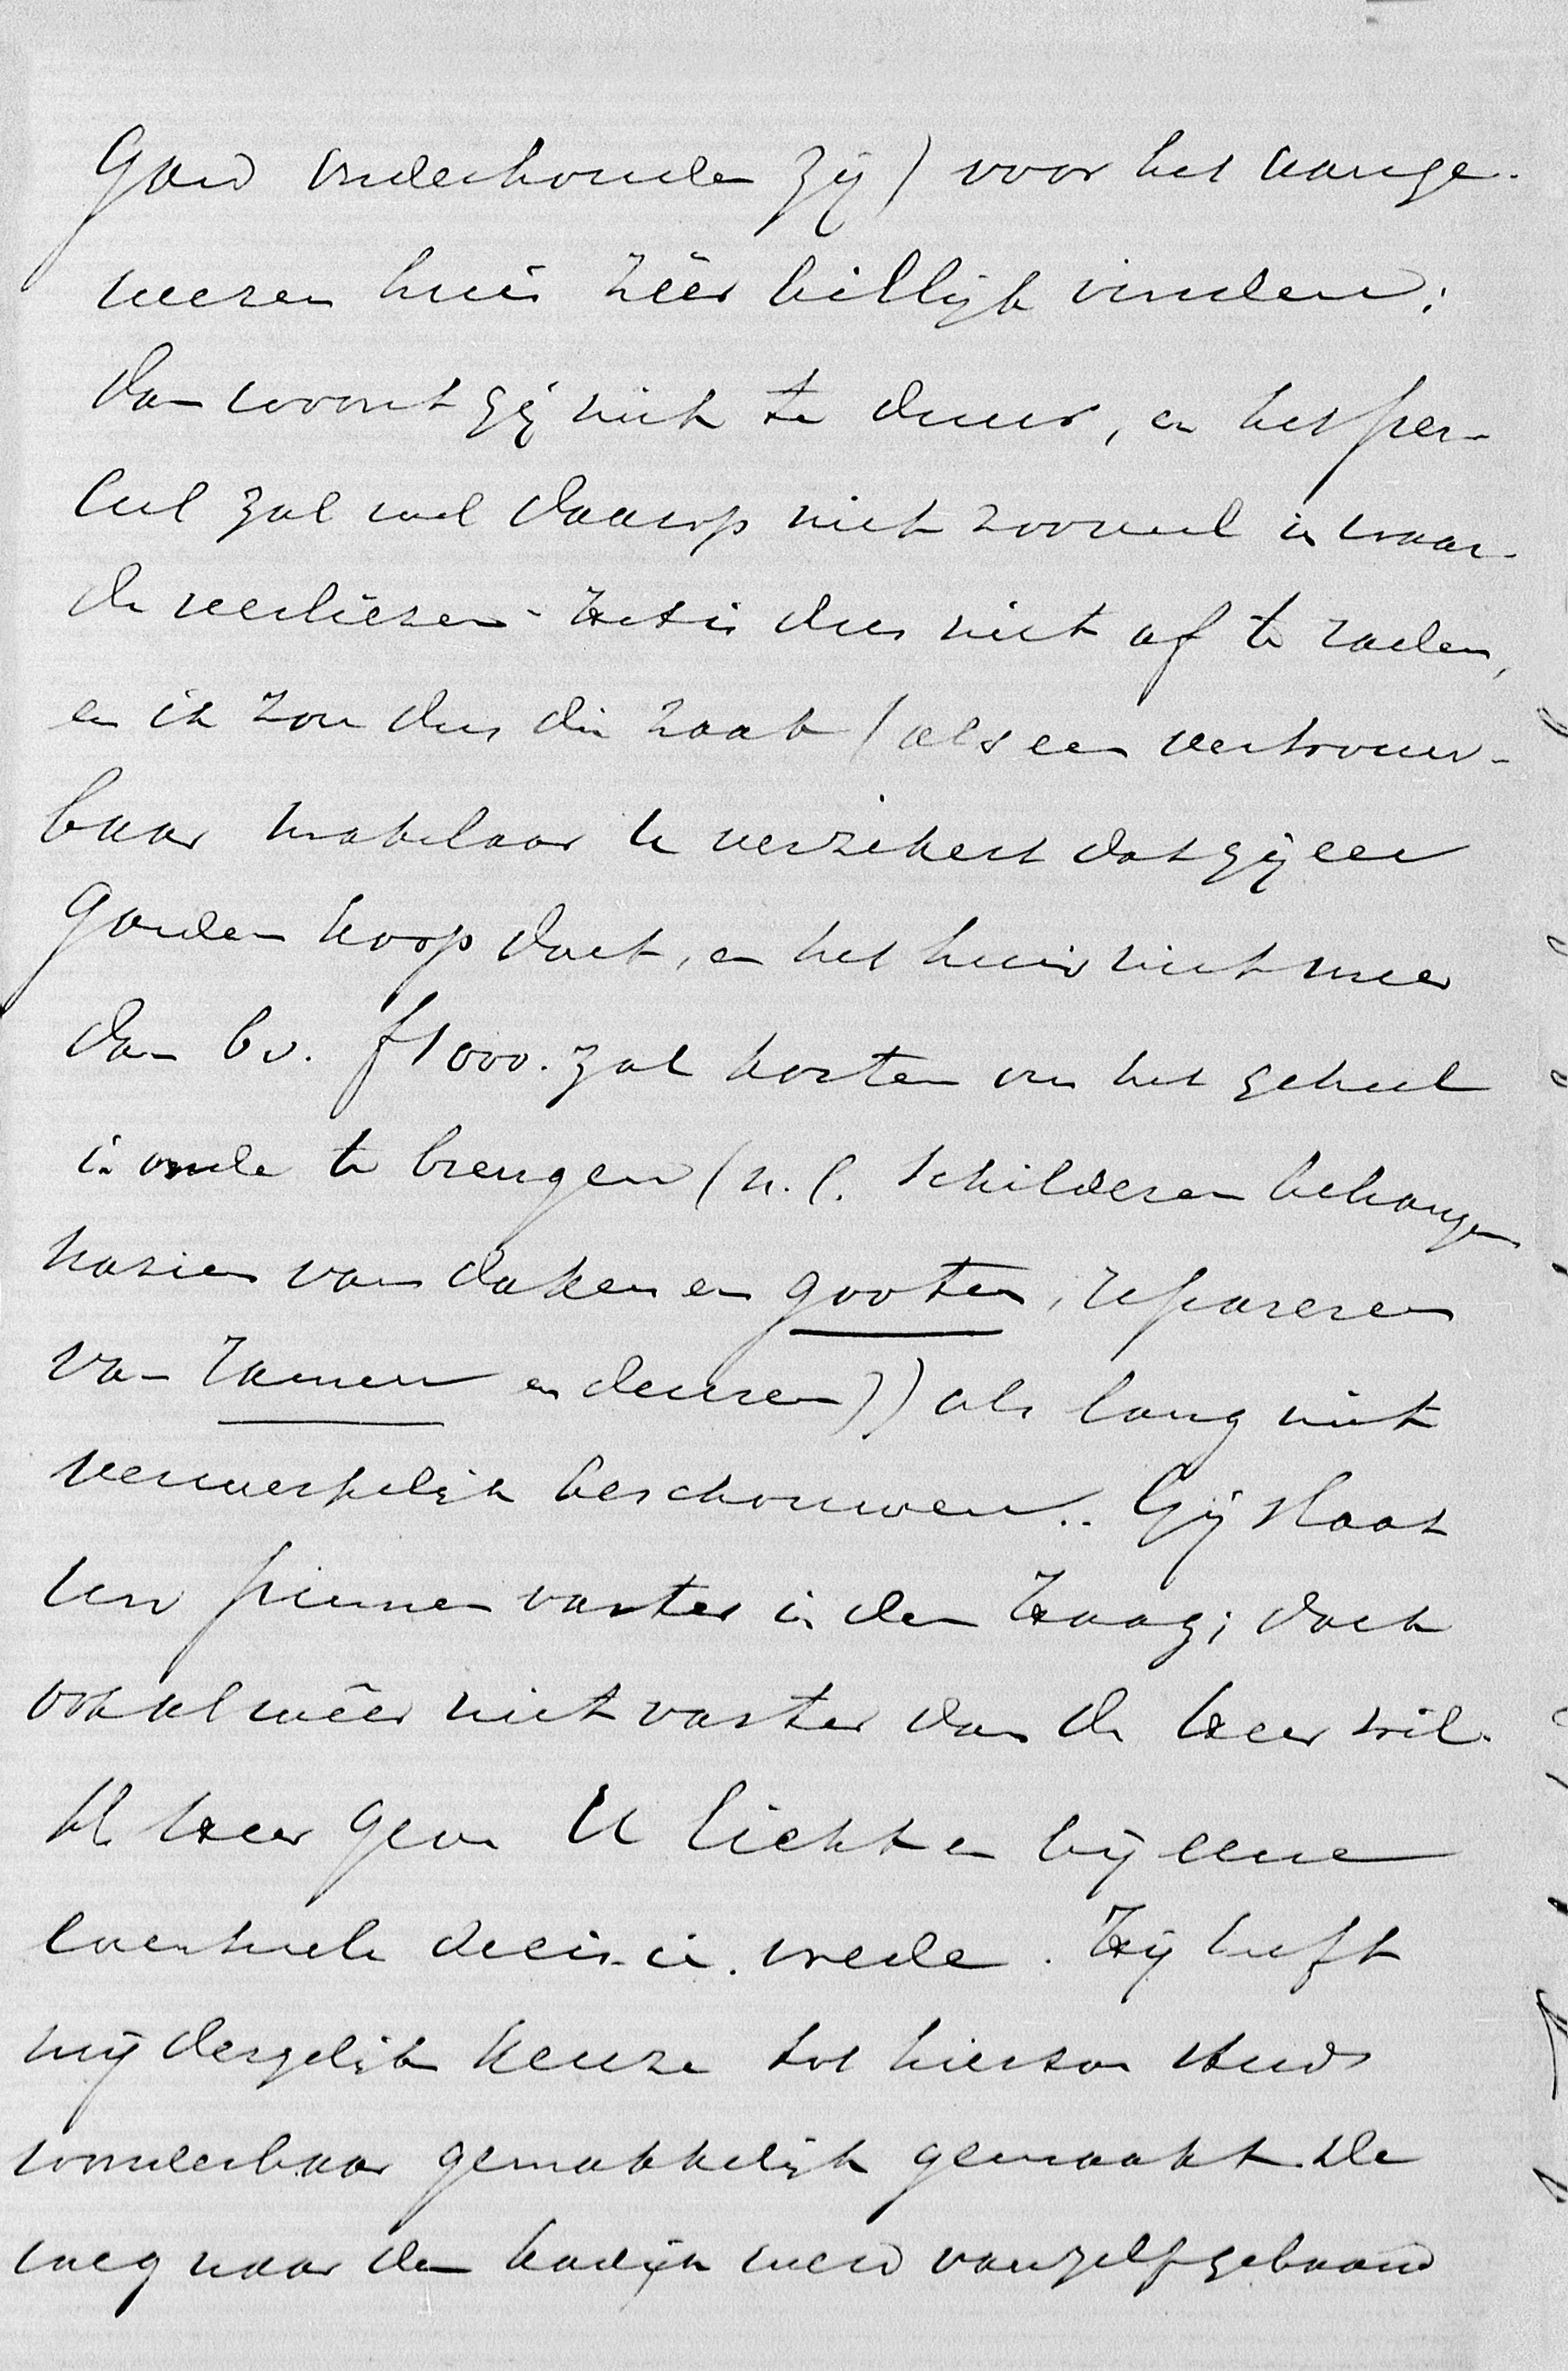 goed onderhouden zij) voor het aange-
wezen huis zéér billijk vinden;
dan woont gij niet te duur, en het per-
ceel zal wel daarop niet zooveel in waar-
de verliezen - Het is dus niet af te raden,
en ik zou dus die zaak (als een vertrouw-
baar makelaar u verzekert dat gij een
goeden koop doet, en het huis niet meer
dan bv. f1000. zal kosten om het geheel
in orde te brengen (n.l. schilderen behangen
nazien van daken en gooten, repareren
van ramen en deuren)) als lang niet
verwerpelijk beschouwen.. Gij slaat
uw pinnen vaster in den Haag; doch
ook al wéér niet vaster dan de Heer wil.
De Heer geve U licht en bij eene
eventuele decisie vrede. Hij heeft
mij dergelijke keuze tot hiertoe steeds
wonderbaar gemakkelijk gemaakt. De
weg naar den Kadijk werd vanzelf gebaand